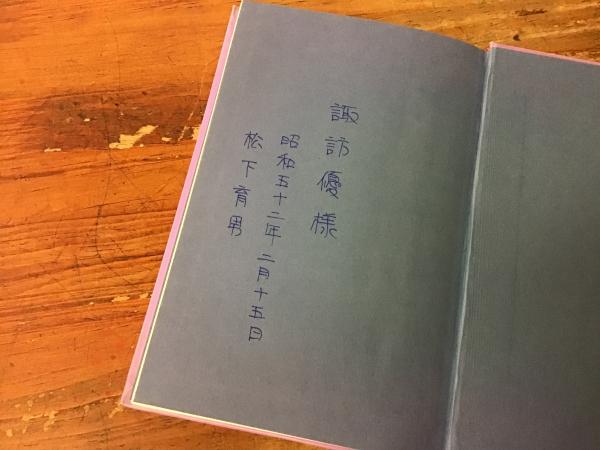 諏訪優様
昭和五十二年二月十五日
松下育男